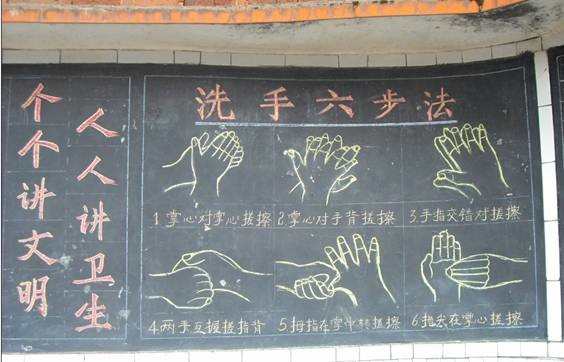 洗手六步法
人人讲卫生
个个讲文明
1 掌心对掌心搓擦
2.掌心对手背搓擦
3.手指交错对搓擦
4.两手互握搓指背
5.拇指在掌中转搓擦
6.指尖在掌心搓擦